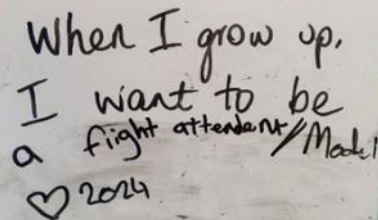 When I grow up,
I want to be
a fight attendent/Model
♡ 2024